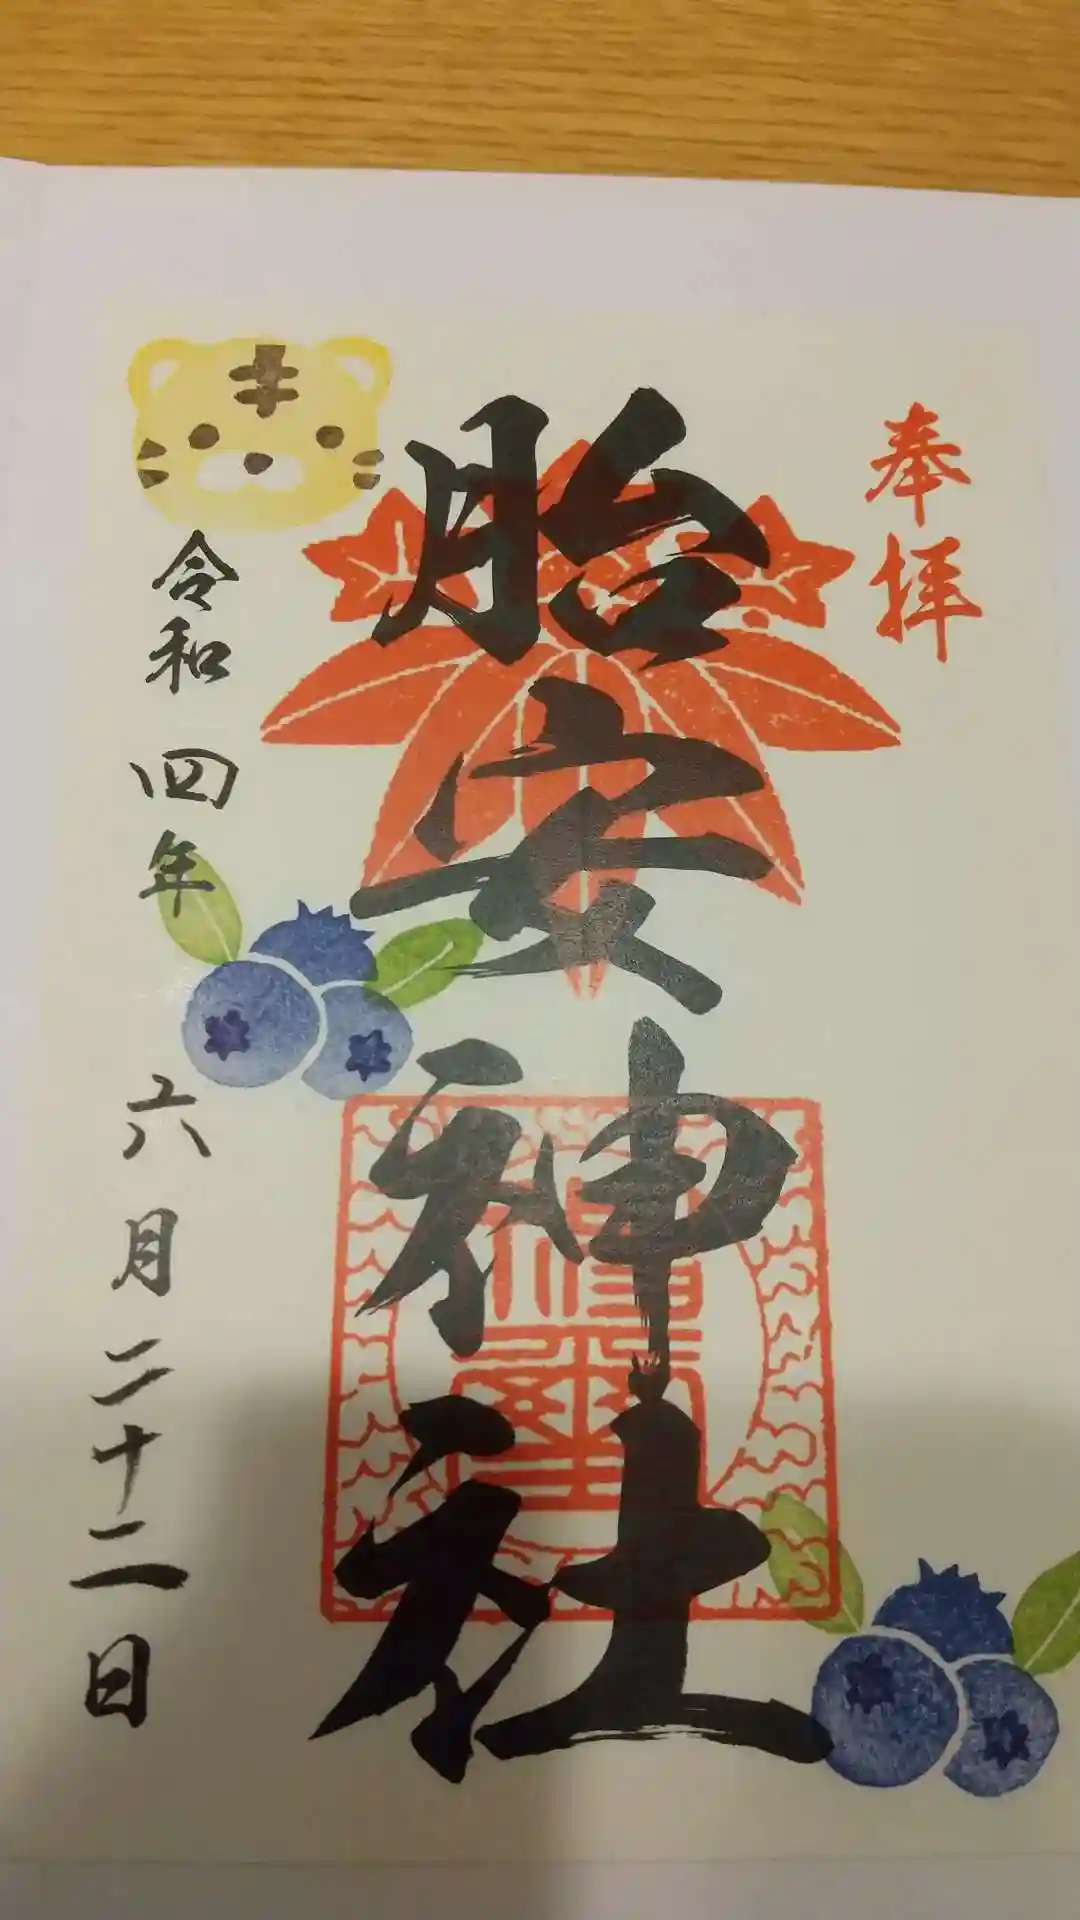 奉拝
胎安神社
令和四年六月二十二日